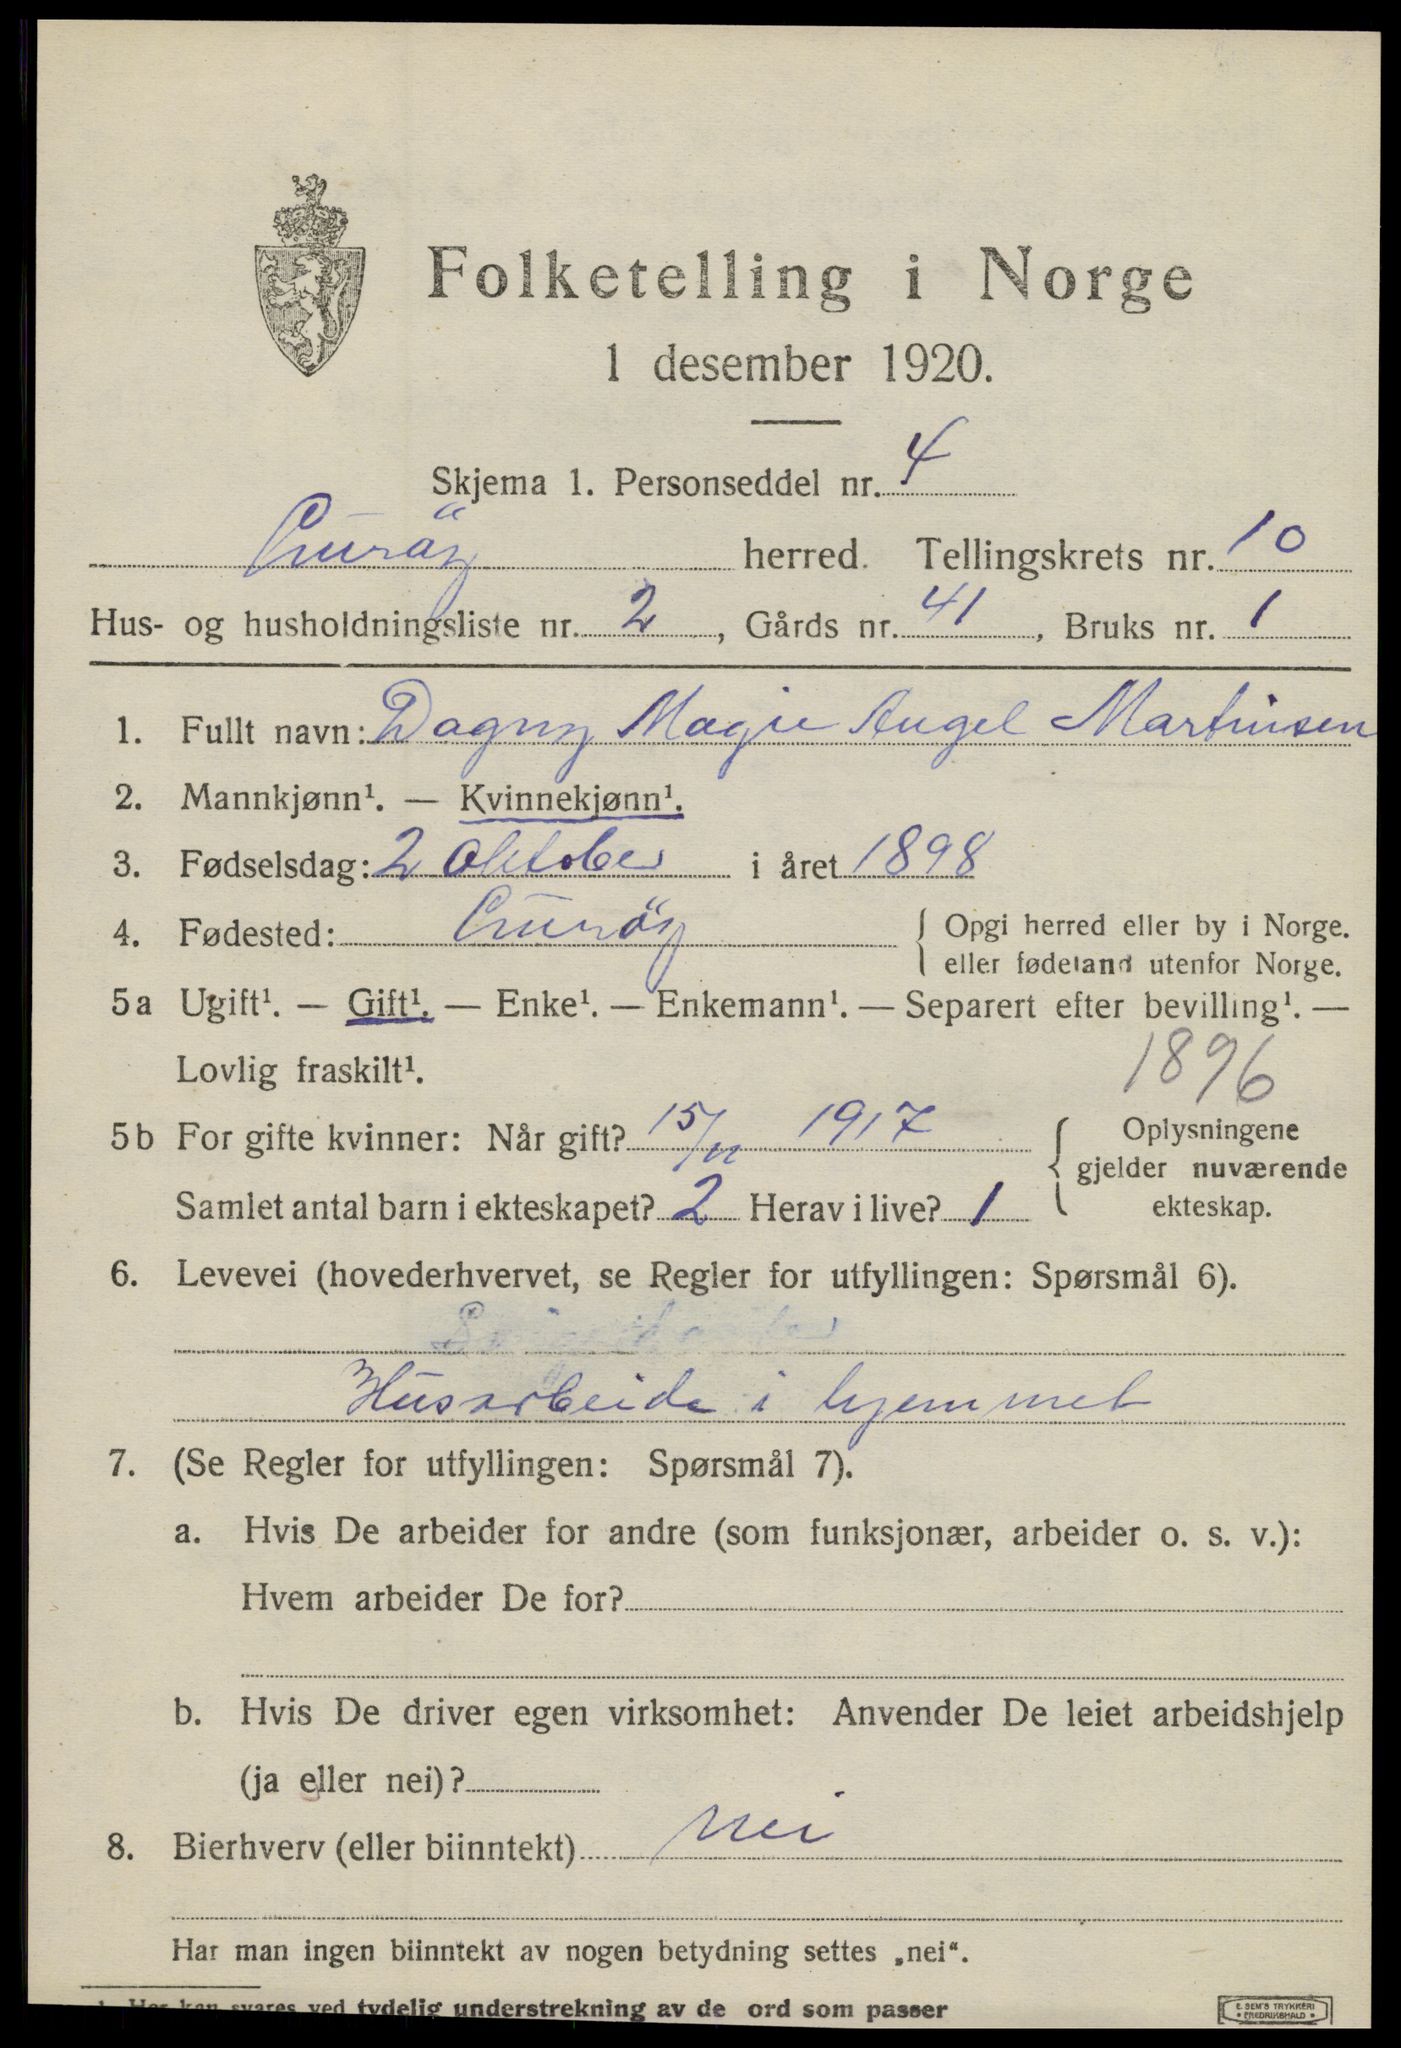 Folketelling i Norge
1 desember 1920.
Skjema 1. Personseddel nr. 4
herred. Tellingskrets nr. 10
Hus- og husholdningsliste nr. 2, Gårds nr. 41, Bruks nr. 1
1. Fullt navn: Dagny Magie Angel Martinsen
2. Mannkjønn¹. — Kvinnekjønn¹.
3. Fødselsdag: 2 Oktober i året 1898
4. Fødested: { Opgi herred eller by i Norge.
eller fødeland utenfor Norge.
5a Ugift¹. — Gift¹. — Enke¹. — Enkemann¹. — Separert efter bevilling¹. —
Lovlig fraskilt¹. 1896
5b For gifte kvinner: Når gift? 15/11 1917 { Oplysningene
gjelder nuværende
Samlet antal barn i ekteskapet? 2 Herav i live? 1 ekteskap.
6. Levevei (hovederhvervet, se Regler for utfyllingen: Spørsmål 6).
Husarbeide i hjemmet
7. (Se Regler for utfyllingen: Spørsmål 7).
a. Hvis De arbeider for andre (som funksjonær, arbeider o. s. v.):
Hvem arbeider De for?
b. Hvis De driver egen virksomhet: Anvender De leiet arbeidshjelp
(ja eller nei)?
8. Bierhverv (eller biinntekt) nei
Har man ingen biinntekt av nogen betydning settes „nei“.
¹ Her kan svares ved tydelig understrekning av de ord som passer
E. SEM'S TRYKKERI
FREDRIKSHALD